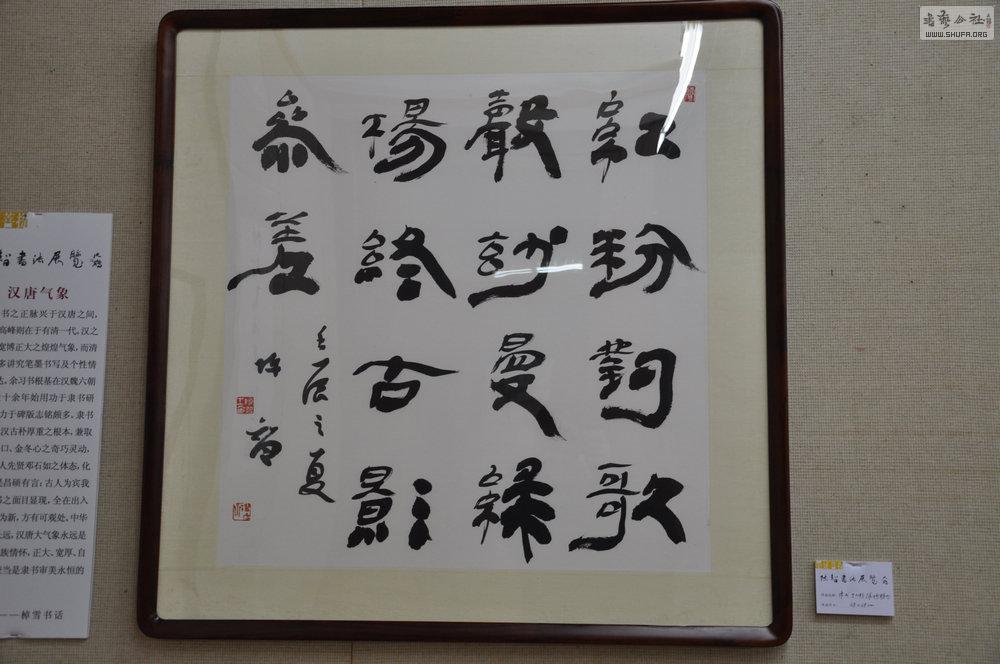 紅粉對歌
聲玅曼綠
楊終古影
參差
壬辰之夏
陈智
智書法展覽
汉唐气象
书之正脉兴于汉唐之间,
高峰则在于有清一代,汉之
宽博正大之煌煌气象,而清
多讲究笔墨书写及个性情
达,余习书根基在汉魏六朝
十余年始用功于隶书研
力于碑版志铭颇多,隶书
汉古朴厚重之根本,兼取
口、金冬心之奇巧灵动,
人先贤邓石如之体态,化
昌硕有言:古人为宾我
之面目显现,全在出入
为新,方有可观处。中华
永远,汉唐大气象永远是
族情怀,正大、宽厚、自
当是隶书审美永恒的
——棹雪书话
陈智書法展覽
书艺公社
WWW.SHUFA.ORG